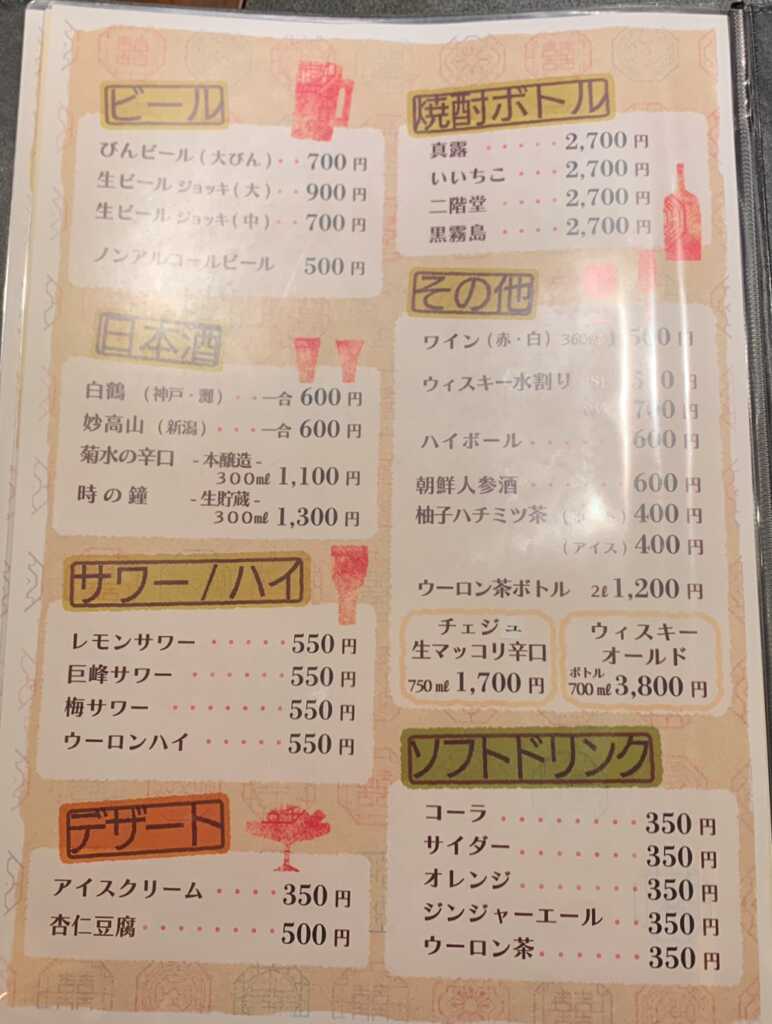 ビール
びんビール(大びん)・・700円
生ビール ジョッキ(大)・・900円
生ビール ジョッキ(中)・・700円
ノンアルコールビール 500円
日本酒
白鶴 (神戸・灘)・・・一合 600円
妙高山 (新潟)・・・・一合 600円
菊水の辛口 -本醸造-
300㎖ 1,100円
時の鐘 -生貯蔵-
300㎖ 1,300円
サワー/ハイ
レモンサワー ・・・・・550円
巨峰サワー ・・・・・550円
梅サワー ・・・・・・550円
ウーロンハイ ・・・・・550円
デザート
アイスクリーム ・・・・350円
杏仁豆腐・・・・・・・・500円
焼酎ボトル
真露 ・・・・・2,700円
いいちこ ・・・・2,700円
二階堂 ・・・・2,700円
黒霧島 ・・・・2,700円
その他
ワイン(赤・白) 円
ウィスキー水割り 円
700円
ハイボール・・・・・600円
朝鮮人参酒・・・・・600円
柚子ハチミツ茶 400円
(アイス) 400円
ウーロン茶ボトル 2ℓ 1,200円
チェジュ
生マッコリ辛口
750㎖ 1,700円
ウィスキー
オールド
ボトル
700㎖ 3,800円
ソフトドリンク
コーラ ・・・・・・・・350円
サイダー・・・・・・・・350円
オレンジ・・・・・・・・350円
ジンジャーエール・・350円
ウーロン茶・・・・・・350円